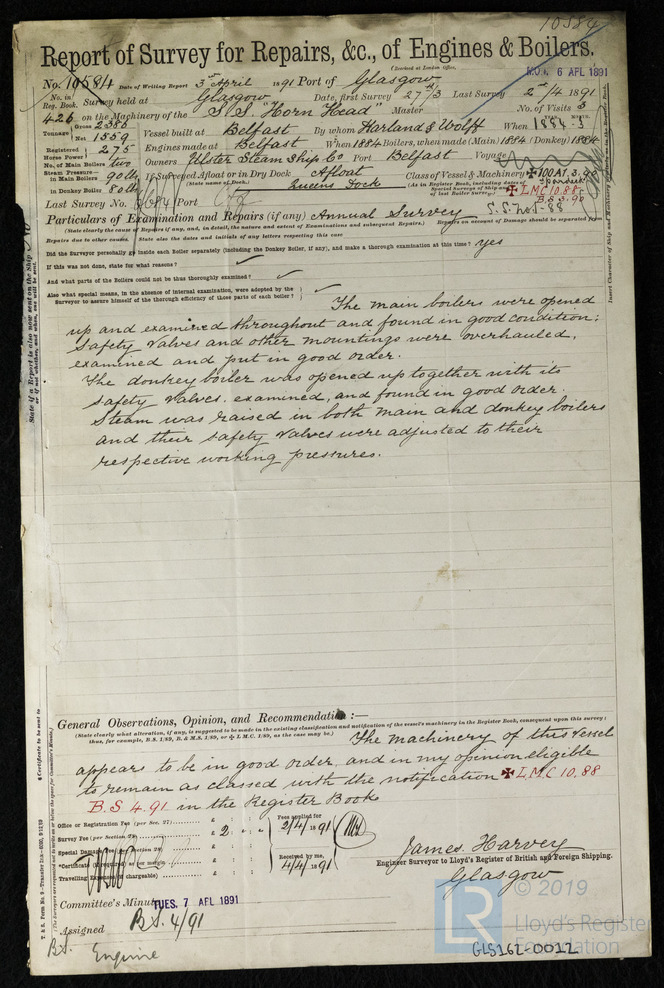 10584
Report of Survey for Repairs, &c., of Engines & Boilers.
(Received at London Office,
MON. 6 APL 1891
No. 10584 Date of Writing Report 3rd April 1891 Port of Glasgow
No. in Reg. Book. Survey held at Glasgow Date, first Survey 27th/3 Last Survey 2nd/4 1891
426 on the Machinery of the S.S. "Horn Head" Master No. of Visits 3
Tonnage Gross 2388 Net 1559 Vessel built at Belfast By whom Harland & Wolff When 1884.3
Registered Horse Power 275 Engines made at Belfast When 1884 Boilers, when made (Main) 1884 (Donkey) 1884
No. of Main Boilers two Owners Ulster Steam Ship Co Port Belfast Voyage
Steam Pressure in Main Boilers 90 lb If Surveyed Afloat or in Dry Dock Afloat Class of Vessel & Machinery ✠100A1. 3.90
(State name of Dock.) Queens Dock (As in Register Book, including dates of Special Surveys of Ship and of last Boiler Survey.)
Spar deck
✠ L.M.C 10.88
B.S 3.90
in Donkey Boiler 80 lb
Last Survey No. Port
S.S. No1-88
Particulars of Examination and Repairs (if any) Annual Survey
(State clearly the cause of Repairs if any, and, in detail, the nature and extent of Examinations and subsequent Repairs.) Repairs on account of Damage should be separated from
Repairs due to other causes. State also the dates and initials of any letters respecting this case
Did the Surveyor personally go inside each Boiler separately (including the Donkey Boiler, if any), and make a thorough examination at this time? yes
If this was not done, state for what reasons? ✓
And what parts of the Boilers could not be thus thoroughly examined? ✓
Also what special means, in the absence of internal examination, were adopted by the
Surveyor to assure himself of the thorough efficiency of those parts of each boiler? ✓
The main boilers were opened
up and examined throughout and found in good condition;
safety valves and other mountings were overhauled,
examined and put in good order.
The donkey boiler was opened up together with its
safety valves. examined, and found in good order.
Steam was raised in both main and donkey boilers
and their safety valves were adjusted to their
respective working pressures.
General Observations, Opinion, and Recommendation :—
(State clearly what alteration, if any, is suggested to be made in the existing classification and notification of the vessel's machinery in the Register Book, consequent upon this survey;
thus, for example, B.S. 1/89, B. & M.S. 1/89, or ✠ L.M.C. 1/89, as the case may be.)
The machinery of this vessel
appears to be in good order, and in my opinion eligible
to remain as classed with the notification ✠ L.M.C 10.88
B.S 4.91 in the Register Book
Office or Registration Fee (per Sec. 27) £
Survey Fee (per Section 28) £ 2 " "
Special Damage Fee (per Section 28) £
*Certificate (if required) as per margin £
Travelling Expenses (if chargeable) £
Fees applied for
2/4/1891
Received by me,
4/4/1891
James Harvey
Engineer Surveyor to Lloyd's Register of British and Foreign Shipping.
Glasgow
Committee's Minute TUES. 7 APL 1891
Assigned B.S. 4/91
B.S. Engine
*Certificate to be sent to
(The Surveyors are requested not to write on or below the space for Committee's Minute.)
Insert Character of Ship and Machinery precisely as in the Register Book.
State if a Report is also now sent on the Ship
or if not, whether, and when, one will be sent.
© 2019
LR
Lloyd's Register
Foundation
GLS162-0012